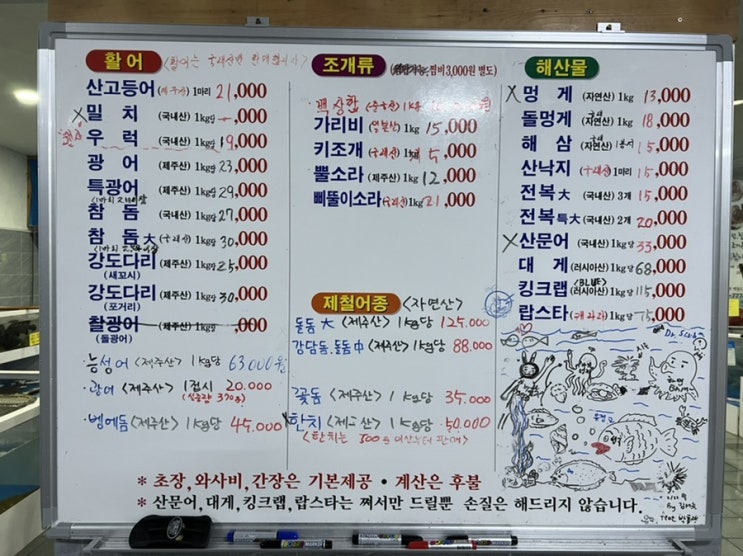 활어 <활어는 국내산만 판매합니다>
산고등어 (제주산) 1마리 21,000
X 밀치 (국내산) 1kg당 ,000
우럭 (국내산) 1kg당 19,000
광어 (제주산) 1kg당 23,000
특광어 (제주산) 1kg당 29,000
참돔 (국내산) 1kg당 27,000
참돔大 (국내산) 1kg당 30,000
강도다리 (제주산) 1kg당 25,000
(새꼬시)
강도다리 (제주산) 1kg당 30,000
(포거리)
찰광어 (제주산) 1kg당 ,000
(돌광어)
능성어 <제주산> 1kg당 63,000원
·광어 <제주산> 1접시 20,000
·벵에돔 <제주산> 1kg당 45,000
조개류 찜비 3,000원 별도)
백상합 (중국산) 1kg
가리비 (일본산) 1kg 15,000
키조개 (국내산) 5,000
뿔소라 (제주산) 1kg 12,000
삐뚤이소라 (국내산) 1kg 21,000
제철어종 <자연산>
돌돔大 <제주산> 1kg당 125,000
강담돔.돌돔中 <제주산> 1kg당 88,000
<제주산> 1kg당 35,000
X 한치 <제주산> 1kg당 50,000
<한치는 500g 이상부터 판매>
해산물
X 멍게 (자연산) 1kg 13,000
돌멍게 (자연산) 1kg 18,000
해삼 (자연산) 15,000
산낙지 (국내산) 1마리 15,000
전복大 (국내산) 3개 15,000
전복特大 (국내산) 2개 20,000
X 산문어 (국내산) 1kg당 33,000
대게 (러시아산) 1kg당 68,000
킹크랩 <BLUE> (러시아산) 1kg당 115,000
랍스타 (캐나다) 1kg당 75,000
* 초장, 와사비, 간장은 기본제공 · 계산은 후불
* 산문어, 대게, 킹크랩, 랍스타는 쪄서만 드릴뿐 손질은 해드리지 않습니다.